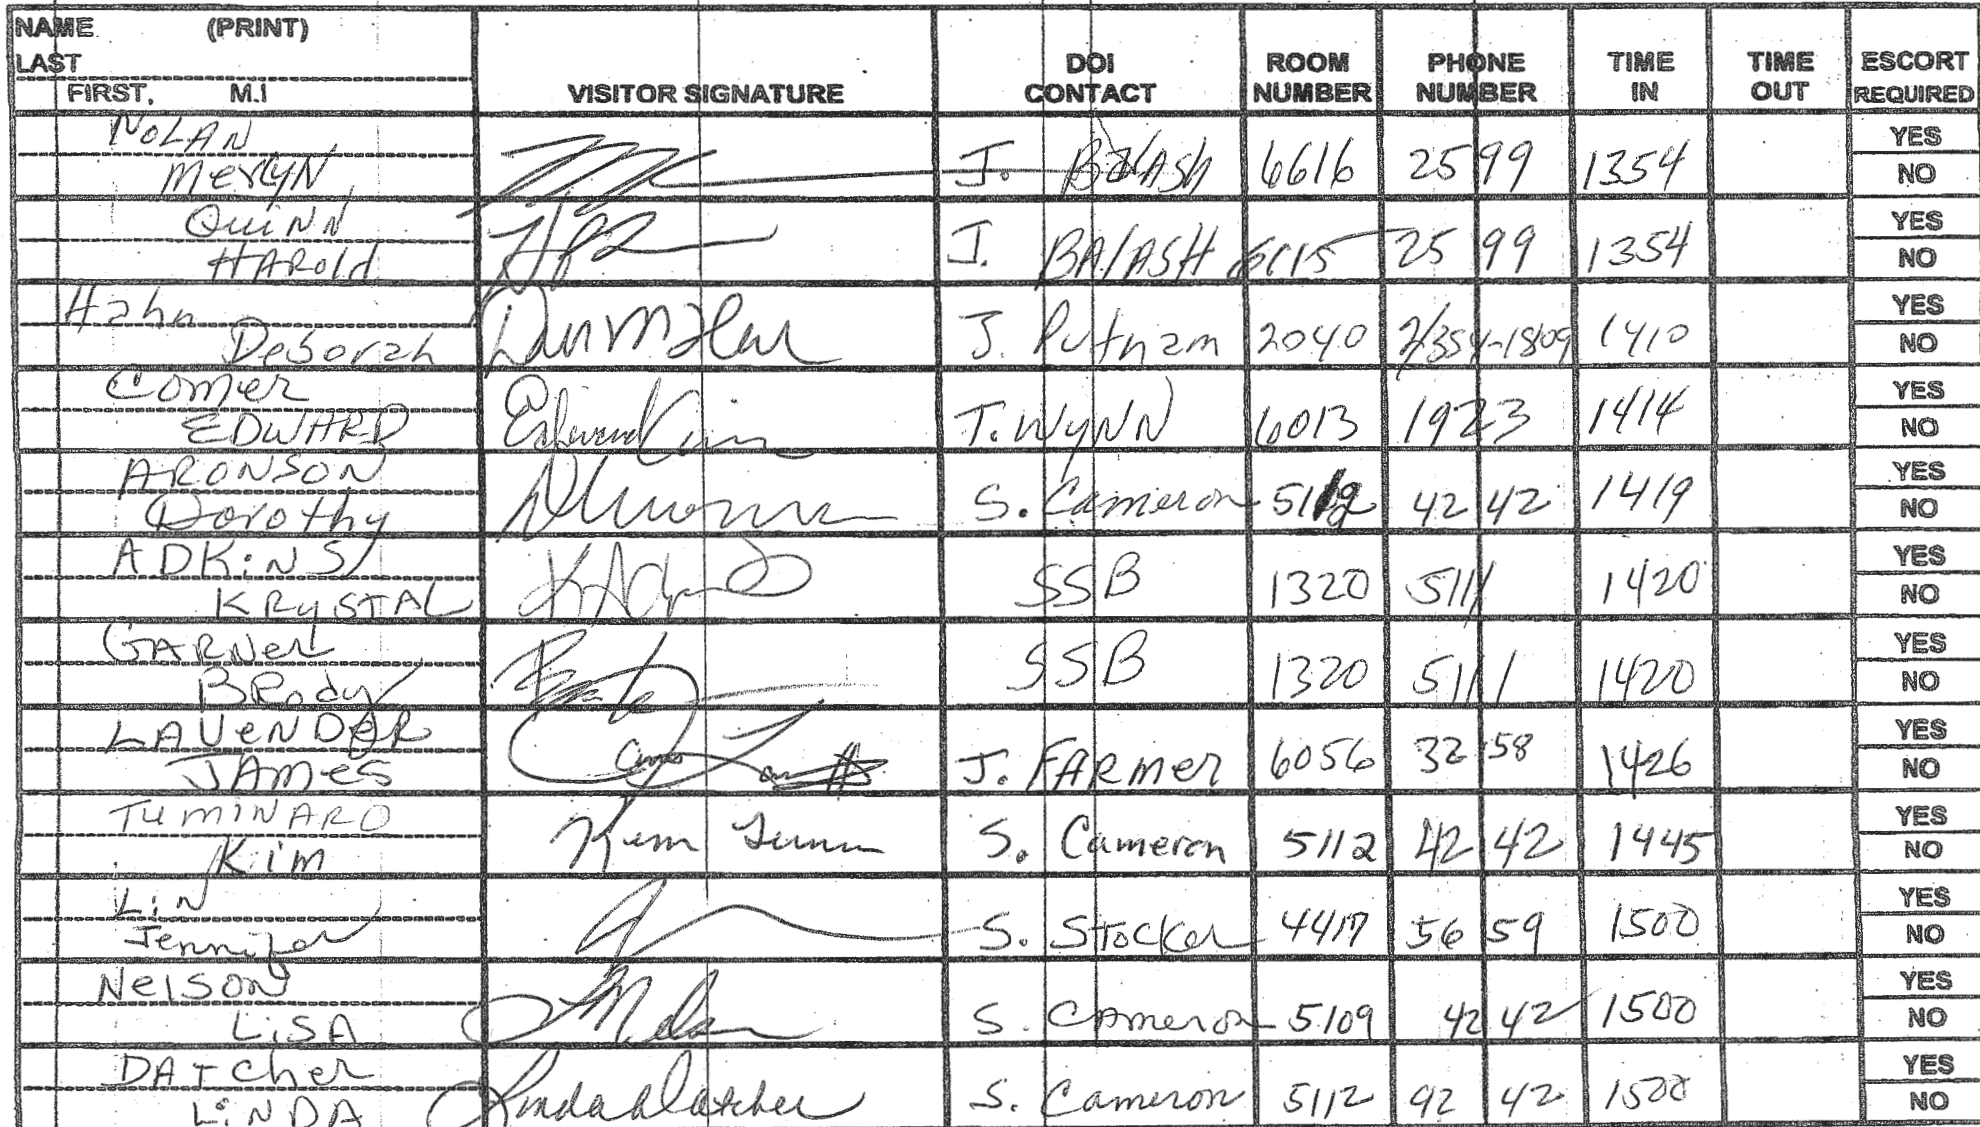 NAME (PRINT)
LAST
FIRST, M.I
VISITOR SIGNATURE
DOI CONTACT
ROOM NUMBER
PHONE NUMBER
TIME IN
TIME OUT
ESCORT REQUIRED
NOLAN
MERLYN J. BALASH 6616 2599 1354 YES NO
QUINN
HAROLD J. BALASH 6615 2599 1354 YES NO
Hahn
Deborah J. Putnam 2040 2/354-1809 1410 YES NO
Comer
EDWARD T. WYNN 6013 1923 1414 YES NO
ARONSON
Dorothy S. Cameron 5112 4242 1419 YES NO
ADKiNS
KRYSTAL SSB 1320 5111 1420 YES NO
GARNER
BRody SSB 1320 5111 1420 YES NO
LAVENDER
JAMES J. FARMER 6056 3258 1426 YES NO
TUMINARO
Kim Kim S. Cameron 5112 4242 1445 YES NO
LiN
Jennifer S. STOCKER 5659 1500 YES NO
NELSON
LiSA S. CAMERON 5109 4242 1500 YES NO
DATCHER
LiNDA Linda Datcher S. Cameron 5112 4242 1500 YES NO